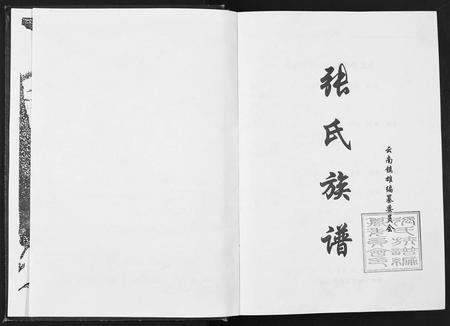 张氏族谱
云南镇雄编纂委员会